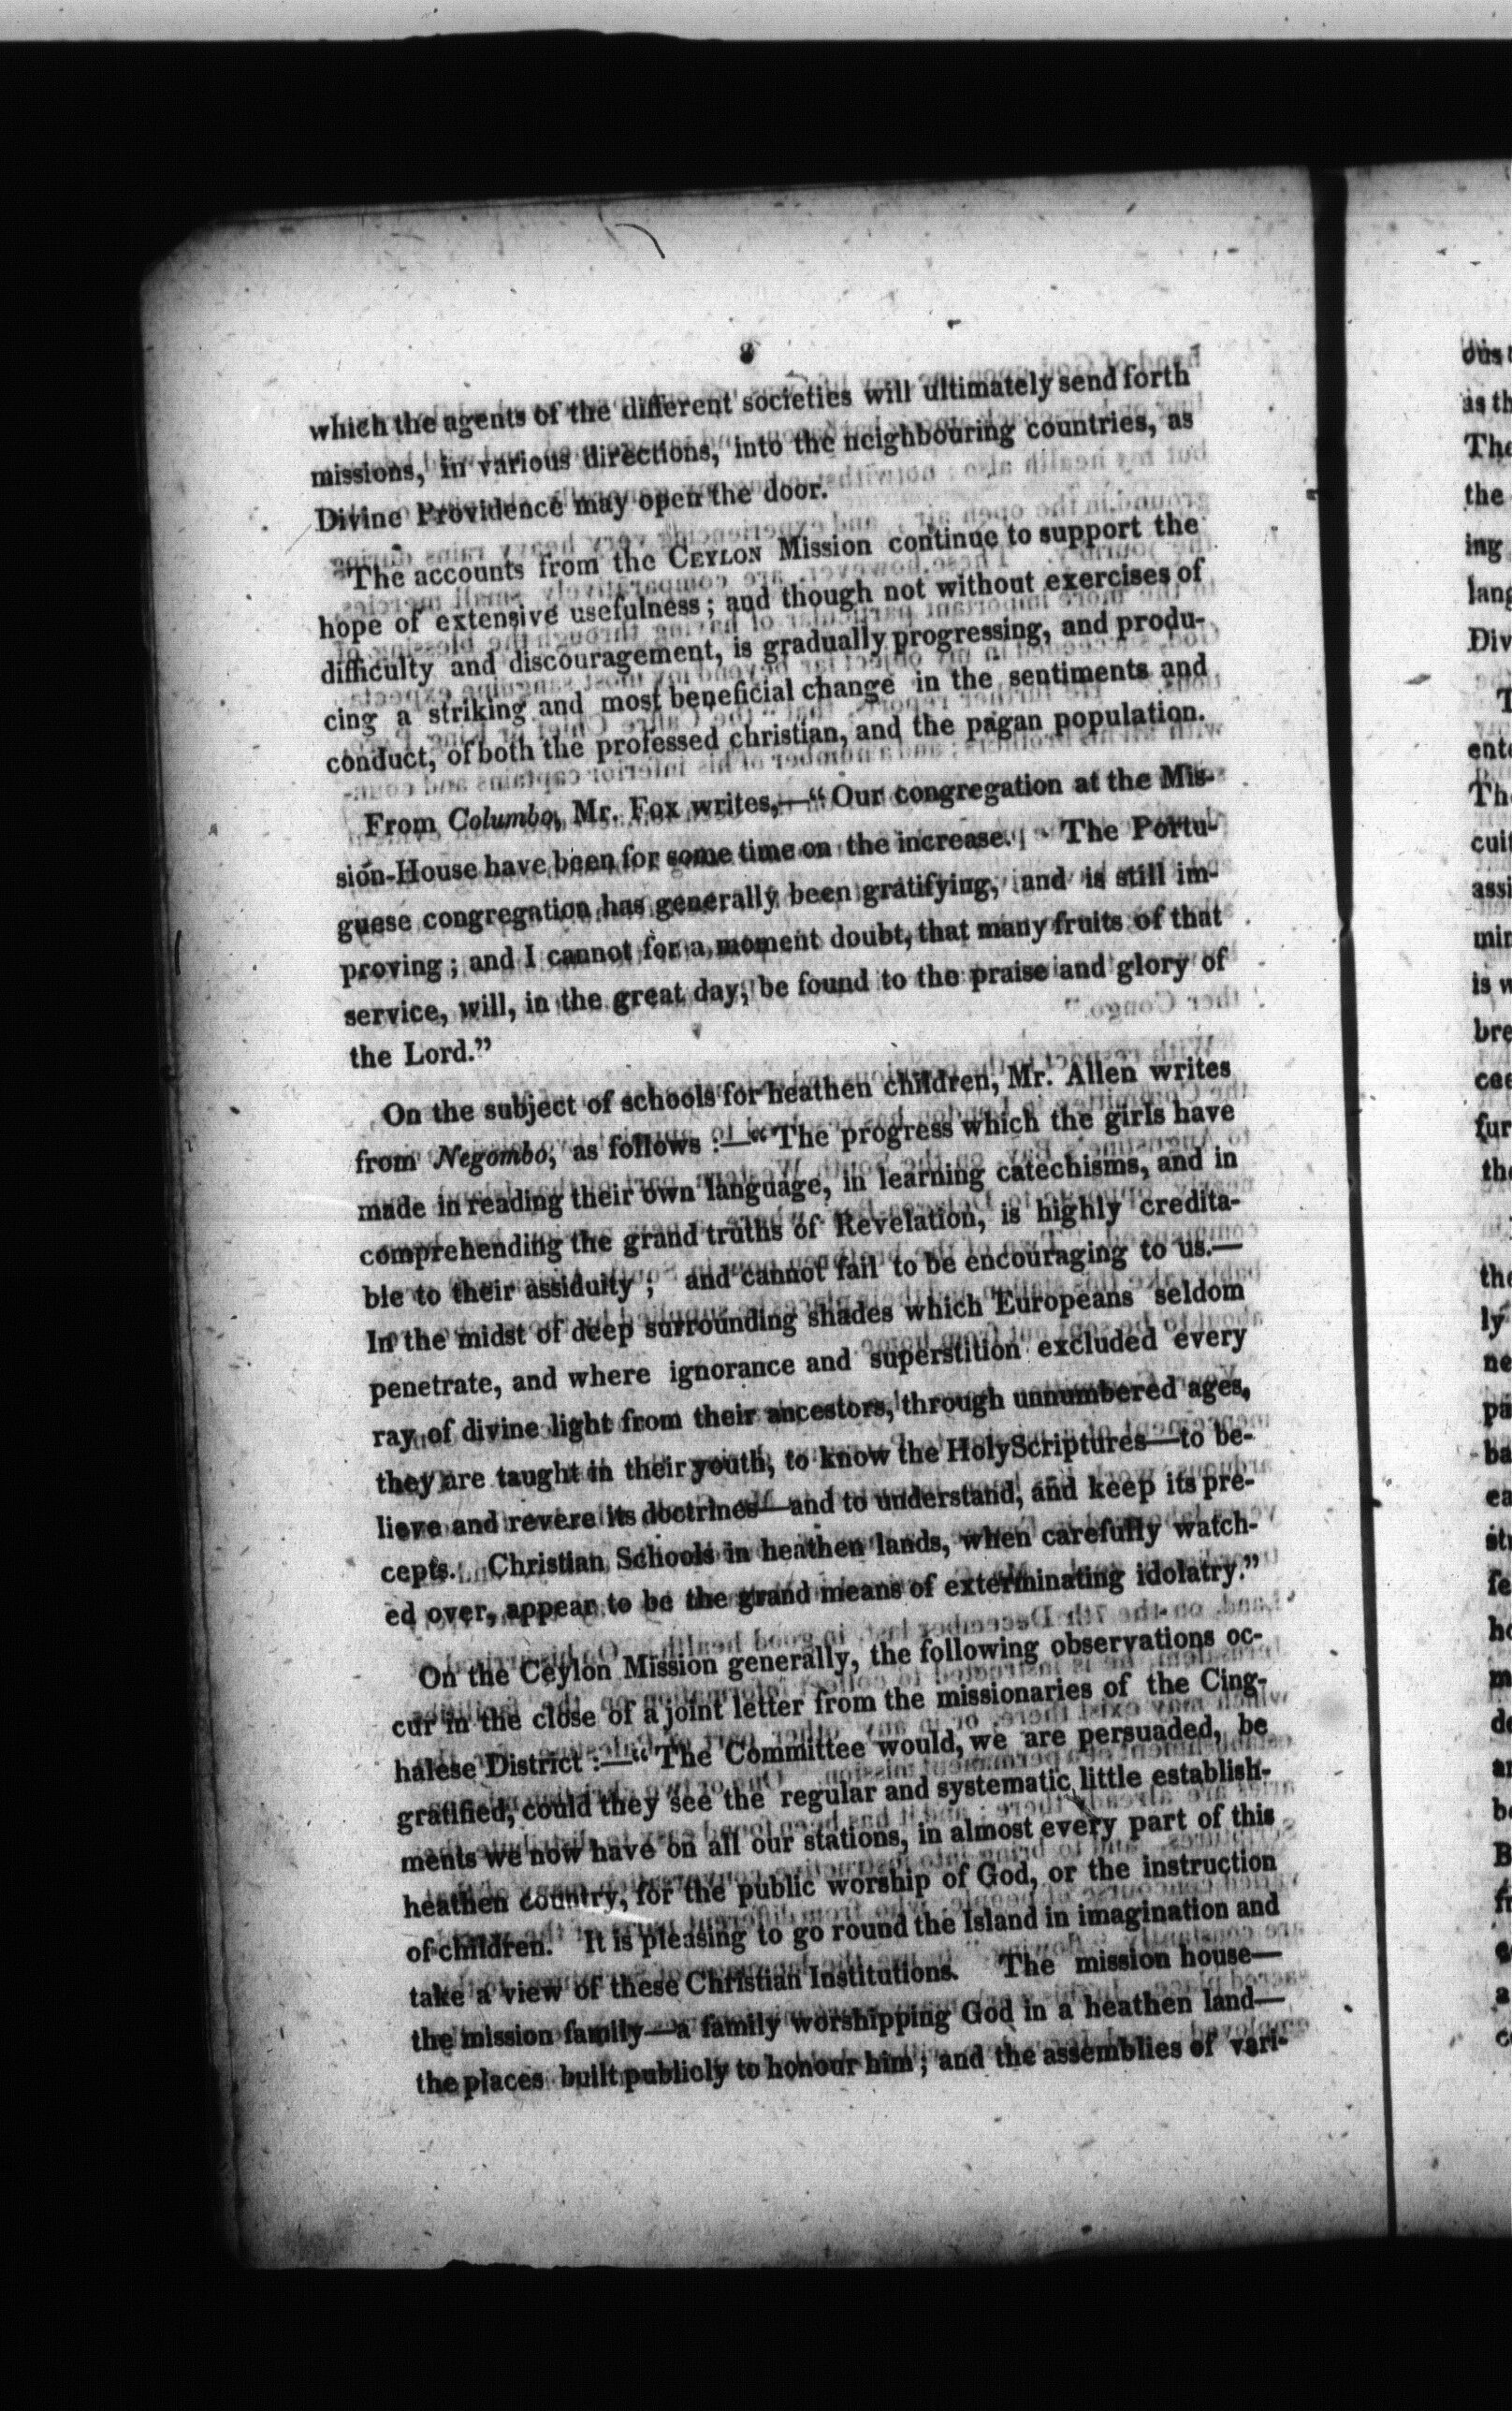 8
which the agents of the different societies will ultimately send forth
missions, in various directions, into the neighbouring countries, as
Divine Providence may open the door.
The accounts from the CEYLON Mission continue to support the
hope of extensive usefulness; and though not without exercises of
difficulty and discouragement, is gradually progressing, and produ-
cing a striking and most beneficial change in the sentiments and
conduct, of both the professed christian, and the pagan population.
From Columbo, Mr. Fox writes,—“Our congregation at the Mis-
sion-House have been for some time on the increase. The Portu-
guese congregation has generally been gratifying, and is still im-
proving; and I cannot for a moment doubt, that many fruits of that
service, will, in the great day, be found to the praise and glory of
the Lord.”
On the subject of schools for heathen children, Mr. Allen writes
from Negombo, as follows:—“The progress which the girls have
made in reading their own language, in learning catechisms, and in
comprehending the grand truths of Revelation, is highly credita-
ble to their assiduity; and cannot fail to be encouraging to us.—
In the midst of deep surrounding shades which Europeans seldom
penetrate, and where ignorance and superstition excluded every
ray of divine light from their ancestors, through unnumbered ages,
they are taught in their youth, to know the Holy Scriptures—to be-
lieve and revere its doctrines—and to understand, and keep its pre-
cepts. Christian Schools in heathen lands, when carefully watch-
ed over, appear to be the grand means of exterminating idolatry.”
On the Ceylon Mission generally, the following observations oc-
cur in the close of a joint letter from the missionaries of the Cing-
halese District:—“The Committee would, we are persuaded, be
gratified, could they see the regular and systematic little establish-
ments we now have on all our stations, in almost every part of this
heathen country, for the public worship of God, or the instruction
of children. It is pleasing to go round the Island in imagination and
take a view of these Christian Institutions. The mission house—
the mission family—a family worshipping God in a heathen land—
the places built publicly to honour him; and the assemblies of vari-